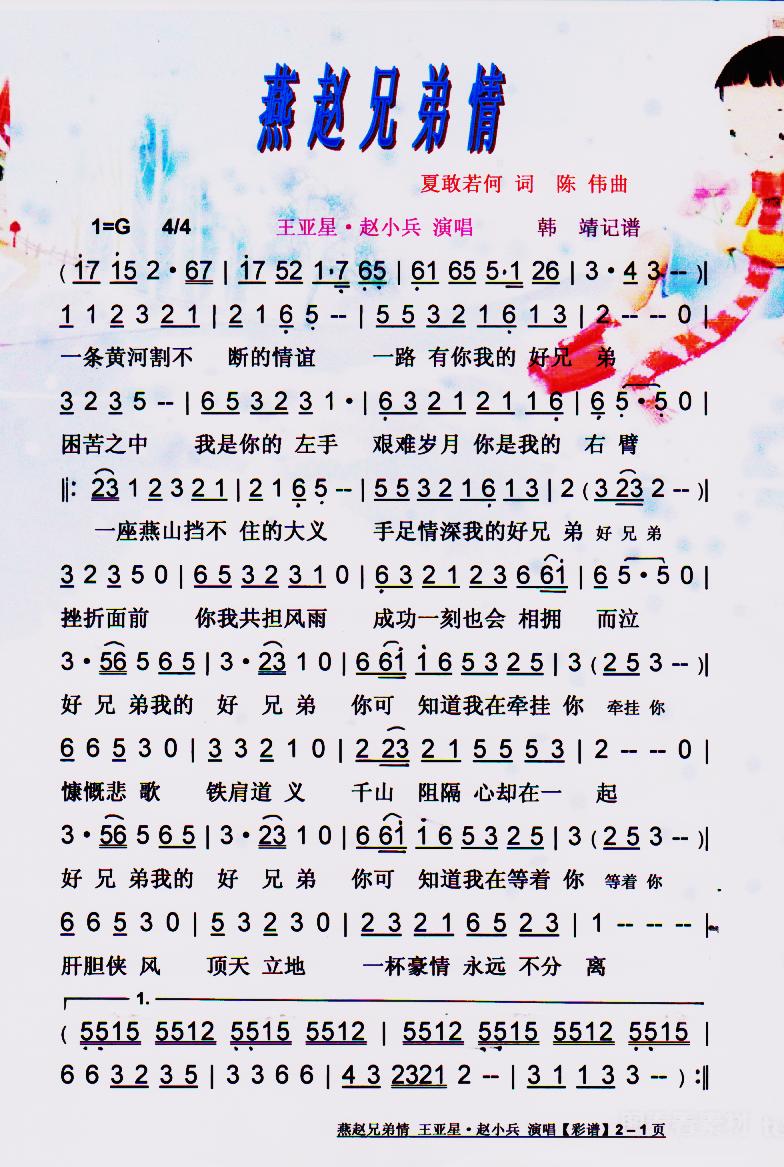 燕赵兄弟情
夏敢若何 词 陈 伟曲
1=G 4/4 王亚星·赵小兵 演唱 韩 靖记谱
( 17 15 2·67 | 17 52 1·7 65 | 61 65 5·1 26 | 3·4 3-- )‖
1 1 2 3 2 1 | 2 1 6 5 -- | 5 5 3 2 1 6 1 3 | 2 -- 0 |
一条黄河割不 断的情谊 一路 有你我的 好兄 弟
3 2 3 5 -- | 6 5 3 2 3 1· | 6 3 2 1 2 1 1 6 | 6 5·5 0 |
困苦之中 我是你的 左手 艰难岁月 你是我的 右 臂
‖: 23 1 2 3 2 1 | 2 1 6 5 -- | 5 5 3 2 1 6 1 3 | 2 ( 3 23 2 -- )‖
一座燕山挡不 住的大义 手足情深我的好兄 弟 好 兄 弟
3 2 3 5 0 | 6 5 3 2 3 1 0 | 6 3 2 1 2 3 6 61 | 6 5·5 0 |
挫折面前 你我共担风雨 成功一刻也会 相拥 而泣
3·56 5 6 5 | 3·23 1 0 | 6 61 1 6 5 3 2 5 | 3 ( 2 5 3 -- )‖
好 兄 弟我的 好 兄 弟 你可 知道我在牵挂 你 牵挂 你
6 6 5 3 0 | 3 3 2 1 0 | 2 23 2 1 5 5 5 3 | 2 -- 0 |
慷慨悲 歌 铁肩道 义 千山 阻隔 心却在一 起
3·56 5 6 5 | 3·23 1 0 | 6 61 1 6 5 3 2 5 | 3 ( 2 5 3 -- )‖
好 兄 弟我的 好 兄 弟 你可 知道我在等着 你 等着 你
6 6 5 3 0 | 5 3 2 3 0 | 2 3 2 1 6 5 2 3 | 1 -- -- |
肝胆侠 风 顶天 立地 一杯豪情 永远 不分 离
1.
( 5515 5512 5515 5512 | 5512 5515 5512 5515 |
6 6 3 2 3 5 | 3 3 6 6 | 4 3 2321 2 -- | 3 1 1 3 - ) :‖
燕赵兄弟情 王亚星·赵小兵 演唱【彩谱】2-1页